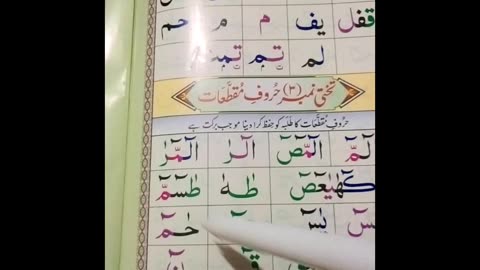 قفل یف م مـ حم
لم تم
تختی نمبر (۳) حُروفِ مُقطَّعات
حروفِ مقطعات کا طلبہ کو حفظ کرا دینا موجب برکت ہے
الٓمّٓ الٓمّٓصٓ الٓرٰ الٓمّٓرٰ
کٓھٰیٰعٓصٓ طٰہٰ طٰسٓمّٓ
یٰسٓ حٰمٓ
قٓ نٓ